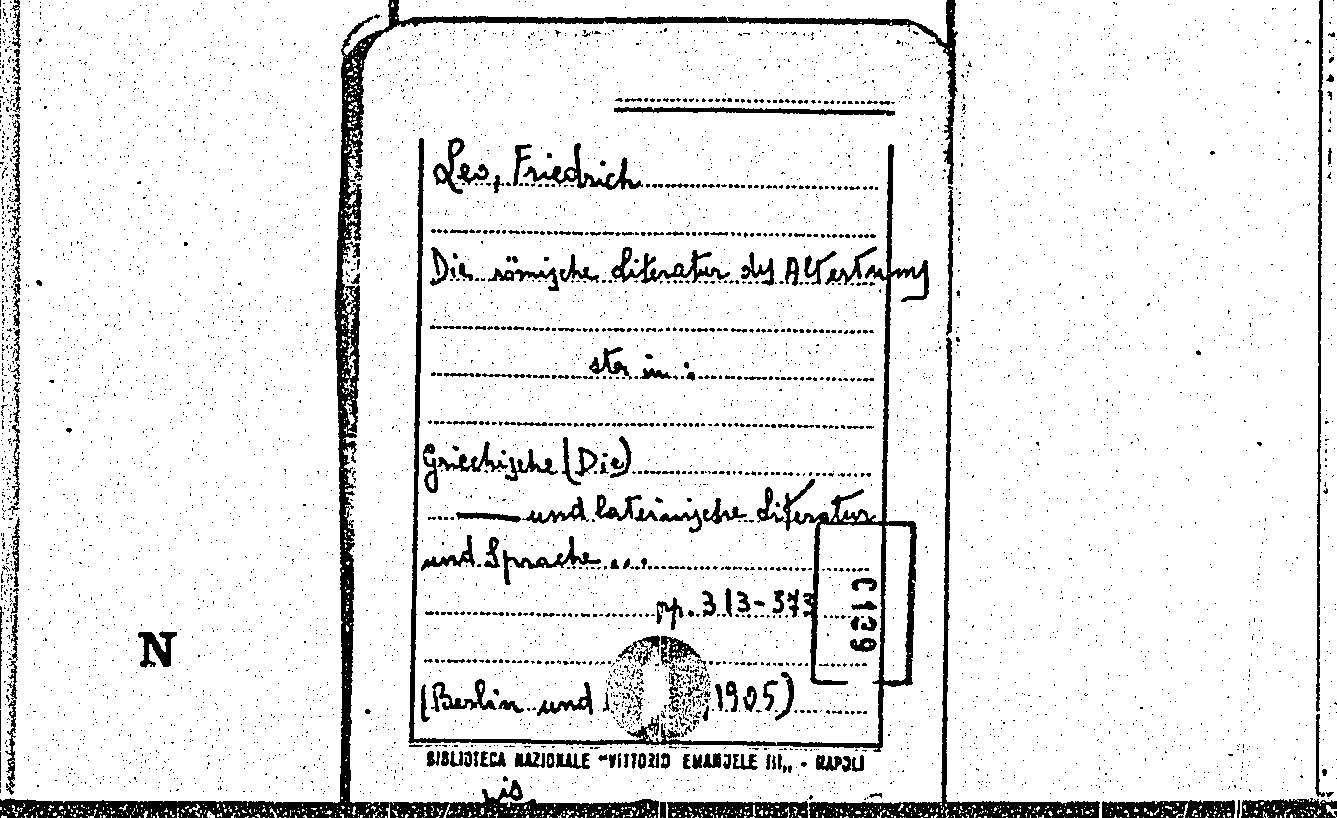 Leo, Friedrich
Die römische Literatur des Altertums
sta in:
Griechische (Die)
—— und lateinische Literatur
und Sprache...
pp. 313-373
C 139
(Berlin und , 1905)
N
BIBLIOTECA NAZIONALE "VITTORIO EMANUELE III„ - NAPOLI